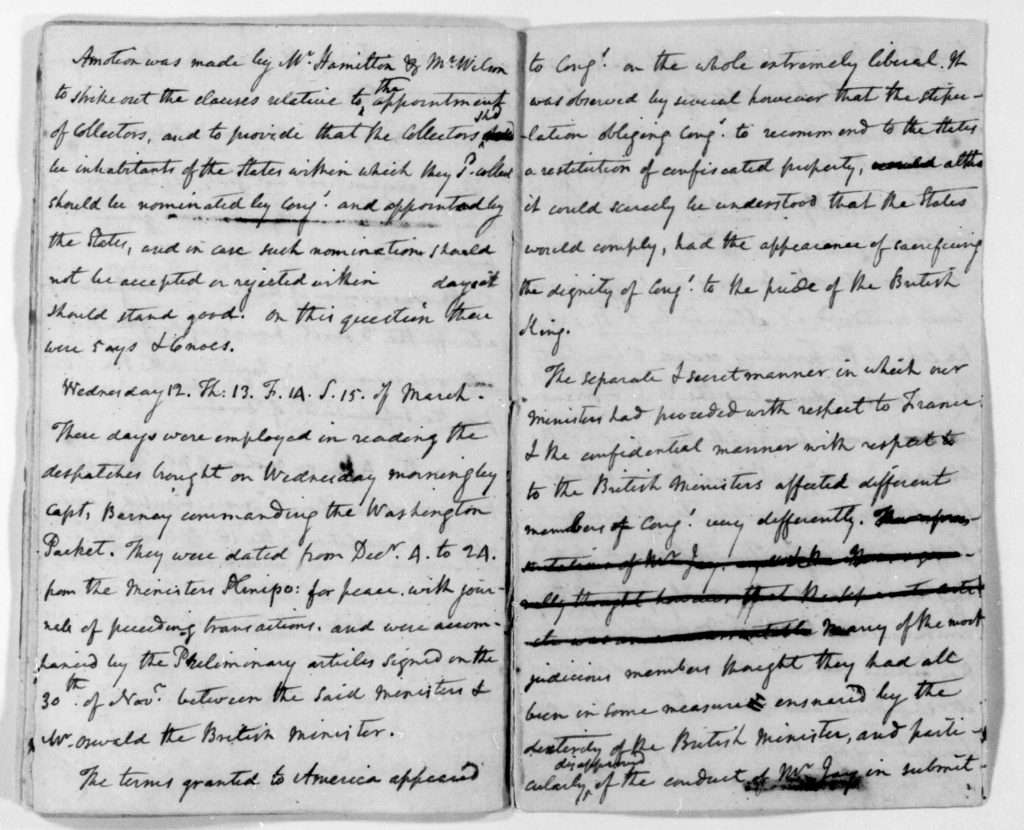 A motion was made by Mr. Hamilton & Mr. Wilson
to strike out the clauses relative to the appointment
of Collectors, and to provide that the Collectors shd
be inhabitants of the States within which they sd. collect
should be nominated by Congs. and appointed by
the States, and in case such nomination should
not be accepted or rejected within days it
should stand good. On this question there
were 5 ays & 6 noes.
Wednesday 12. Th: 13. F. 14. S. 15. of March.
These days were employed in reading the
despatches brought on Wednesday morning by
Capt. Barney commanding the Washington
Packet. They were dated from Decr. 4. to 24.
from the Ministers Plenipo: for peace, with jour-
nals of preceding transactions. and were accom-
panied by the Preliminary articles signed on the
30th. of Novr. between the said Ministers &
Mr. Oswald the British Minister.
The terms granted to America appeared
to Congs. on the whole extremely liberal. It
was observed by several however that the stipu-
lation obliging Congs. to recommend to the States
a restitution of confiscated property, would altho
it could scarcely be understood that the States
would comply, had the appearance of sacrificing
the dignity of Congs. to the pride of the British
King.
The separate & secret manner in which our
Ministers had proceded with respect to France
& the confidential manner with respect to
to the British Ministers affected different
members of Congs. very differently.
of Mr. Jay,
thought however that the separate
it was Many of the most
judicious members thought they had all
been in some measure ensnared by the
dexterity of the British Minister, and parti-
cularly disapproved of the conduct of Mr. Jay in submit-